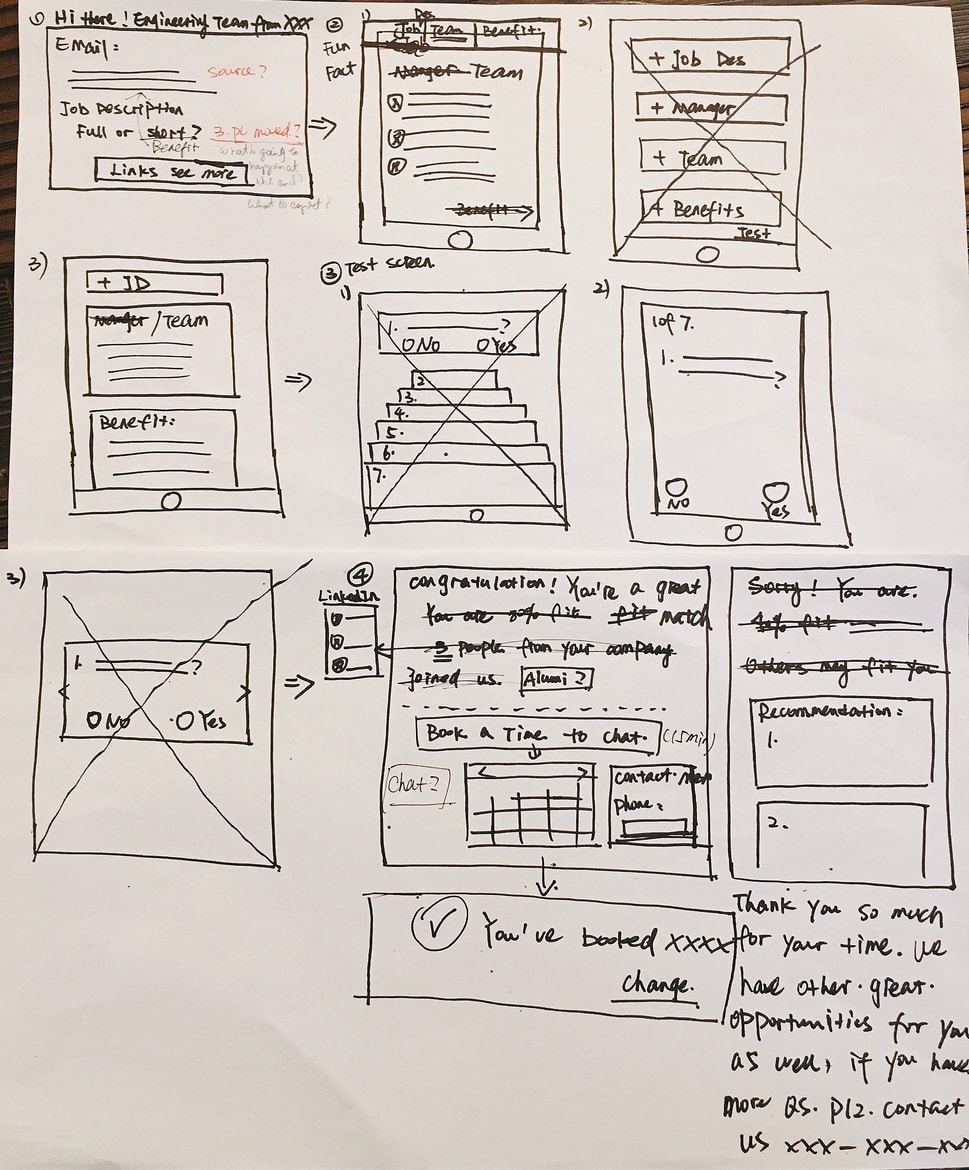 ① Hi there! Engineering Team from XXX
EMail:
source?
Job Description
Full or short? 3. pl moved?
Benefit
what's going to
happen at
the end?
what to expect?
Links see more
②
Fun
Fact
1)
Des
Job Team Benefit.
Manger Team
Benefit
2)
+ Job Des
+ Manager
+ Team
+ Benefits
Test
3)
+ JD
Manger / Team
Benefit:
③ Test screen.
1)
1. ?
No Yes
2
3.
4.
5.
6.
7.
2)
1 of 7.
1.
No Yes
3)
1. ?
No Yes
④
LinkedIn
congratulation! You're a great
You are 80% fit fit match
3 people from your company
joined us. Alumi?
Book a Time to chat. (15min)
Chat?
contact.
phone:
You've booked XXXX
change.
Sorry! You are.
40% fit
Others may fit you
Recommendation:
1.
2.
Thank you so much
for your time. We
have other great
opportunities for you
as well, if you have
more Qs. plz. contact
us xxx-xxx-xxx